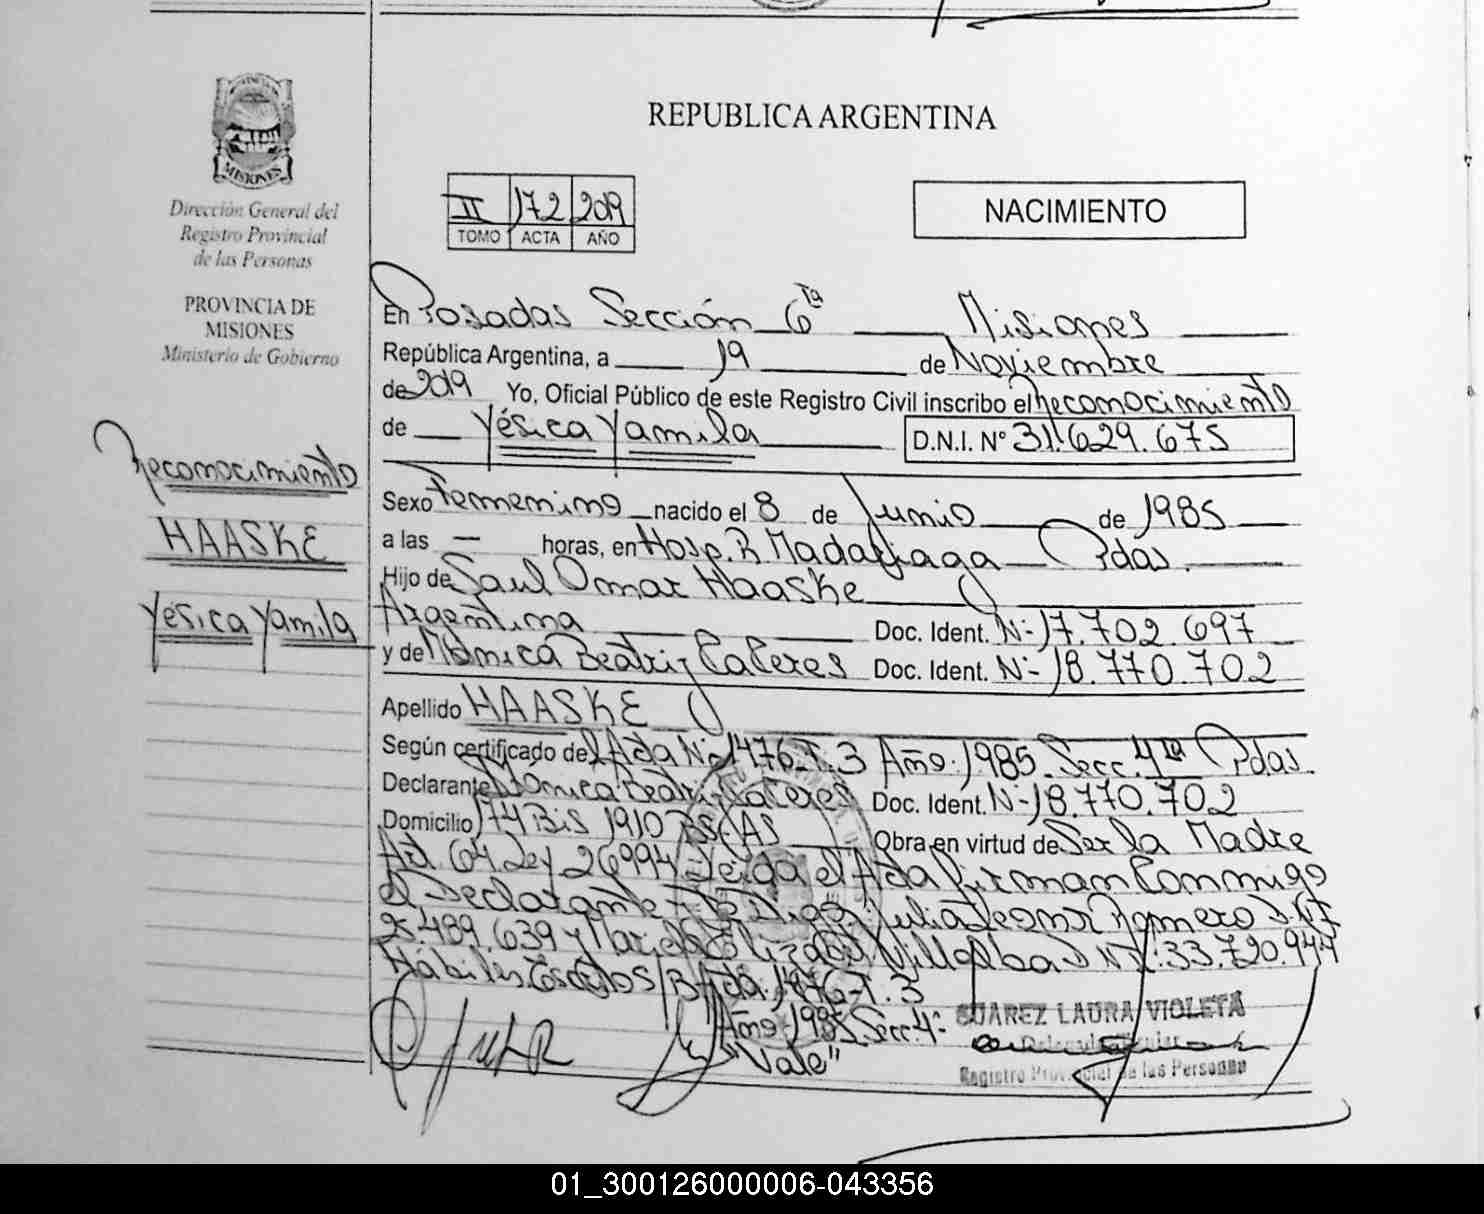 REPUBLICA ARGENTINA
MISIONES
Dirección General del
Registro Provincial
de las Personas
PROVINCIA DE
MISIONES
Ministerio de Gobierno
II 172 2019
TOMO ACTA AÑO
NACIMIENTO
En Posadas Sección 6ta Misiones
República Argentina, a 19 de Noviembre
de 2019 Yo, Oficial Público de este Registro Civil inscribo el Reconocimiento
de Yésica Yamila D.N.I. N° 31.629.675
Reconocimiento
HAASKE
Yésica Yamila
Sexo Femenino nacido el 8 de Junio de 1985
a las — horas, en Hosp. R Madariaga Pdas.
Hijo de Saul Omar Haaske
Argentina Doc. Ident. N:- 17.702.697
y de Mónica Beatriz Caceres Doc. Ident. N:- 18.770.702
Apellido HAASKE
Según certificado del Acta N:- 1476-T.3 Año: 1985. Secc. 4ta Pdas.
Declarante Monica Beatriz Caceres Doc. Ident. N:- 18.770.702
Domicilio 174 Bis 1910 BS.AS Obra en virtud de Ser la Madre
Art. 64 Ley 26994 el Acta Firman Conmigo
el Declarante Digo: Julia Romero D.N.I
489.639 y Mariela Elizabet Villalba DNI: 33.720.944
Hábiles Acta: 1476-T.3
Año-1985 Secc. 4:-
"Vale"
SUAREZ LAURA VIOLETA
Registro Provincial de las Personas
01_300126000006-043356